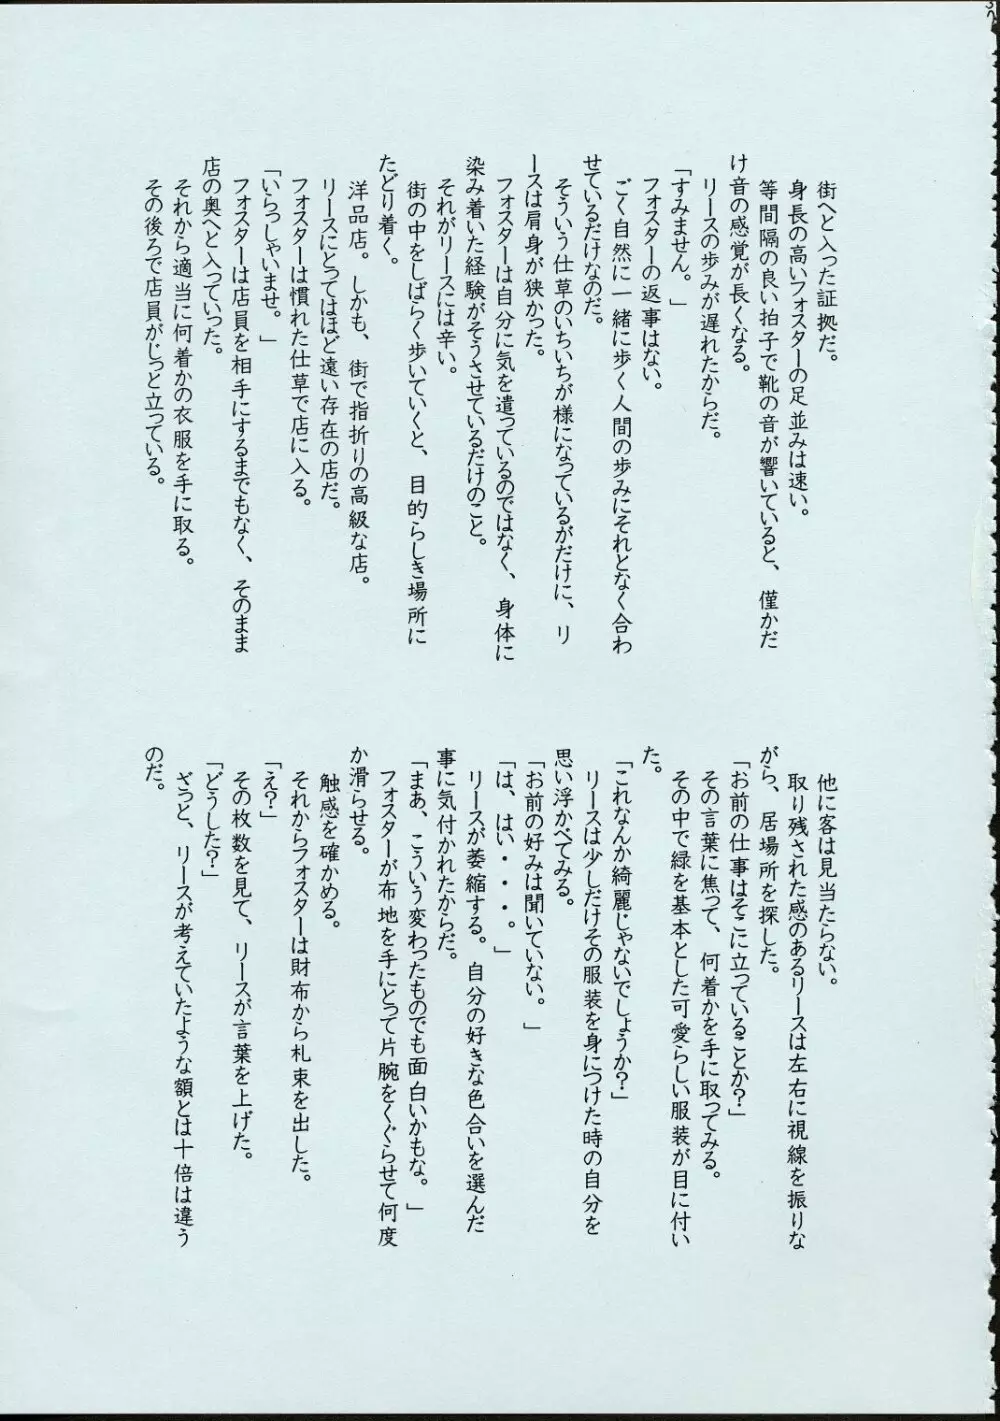 街へと入った証拠だ。
身長の高いフォスターの足並みは速い。
等間隔の良い拍子で靴の音が響いていると、僅かだ
け音の感覚が長くなる。
リースの歩みが遅れたからだ。
「すみません。」
フォスターの返事はない。
ごく自然に一緒に歩く人間の歩みにそれとなく合わ
せているだけなのだ。
そういう仕草のいちいちが様になっているがだけに、リ
ースは肩身が狭かった。
フォスターは自分に気を遣っているのではなく、身体に
染み着いた経験がそうさせているだけのこと。
それがリースには辛い。
街の中をしばらく歩いていくと、目的らしき場所に
たどり着く。
洋品店。しかも、街で指折りの高級な店。
リースにとってはほど遠い存在の店だ。
フォスターは慣れた仕草で店に入る。
「いらっしゃいませ。」
フォスターは店員を相手にするまでもなく、そのまま
店の奥へと入っていった。
それから適当に何着かの衣服を手に取る。
その後ろで店員がじっと立っている。
他に客は見当たらない。
取り残された感のあるリースは左右に視線を振りな
がら、居場所を探した。
「お前の仕事はそこに立っていることか?」
その言葉に焦って、何着かを手に取ってみる。
その中で緑を基本とした可愛らしい服装が目に付い
た。
「これなんか綺麗じゃないでしょうか?」
リースは少しだけその服装を身につけた時の自分を
思い浮かべてみる。
「お前の好みは聞いていない。」
「は、はい・・・。」
リースが萎縮する。自分の好きな色合いを選んだ
事に気付かれたからだ。
「まあ、こういう変わったものでも面白いかもな。」
フォスターが布地を手にとって片腕をくぐらせて何度
か滑らせる。
触感を確かめる。
それからフォスターは財布から札束を出した。
「え?」
その枚数を見て、リースが言葉を上げた。
「どうした?」
ざっと、リースが考えていたような額とは十倍は違う
のだ。